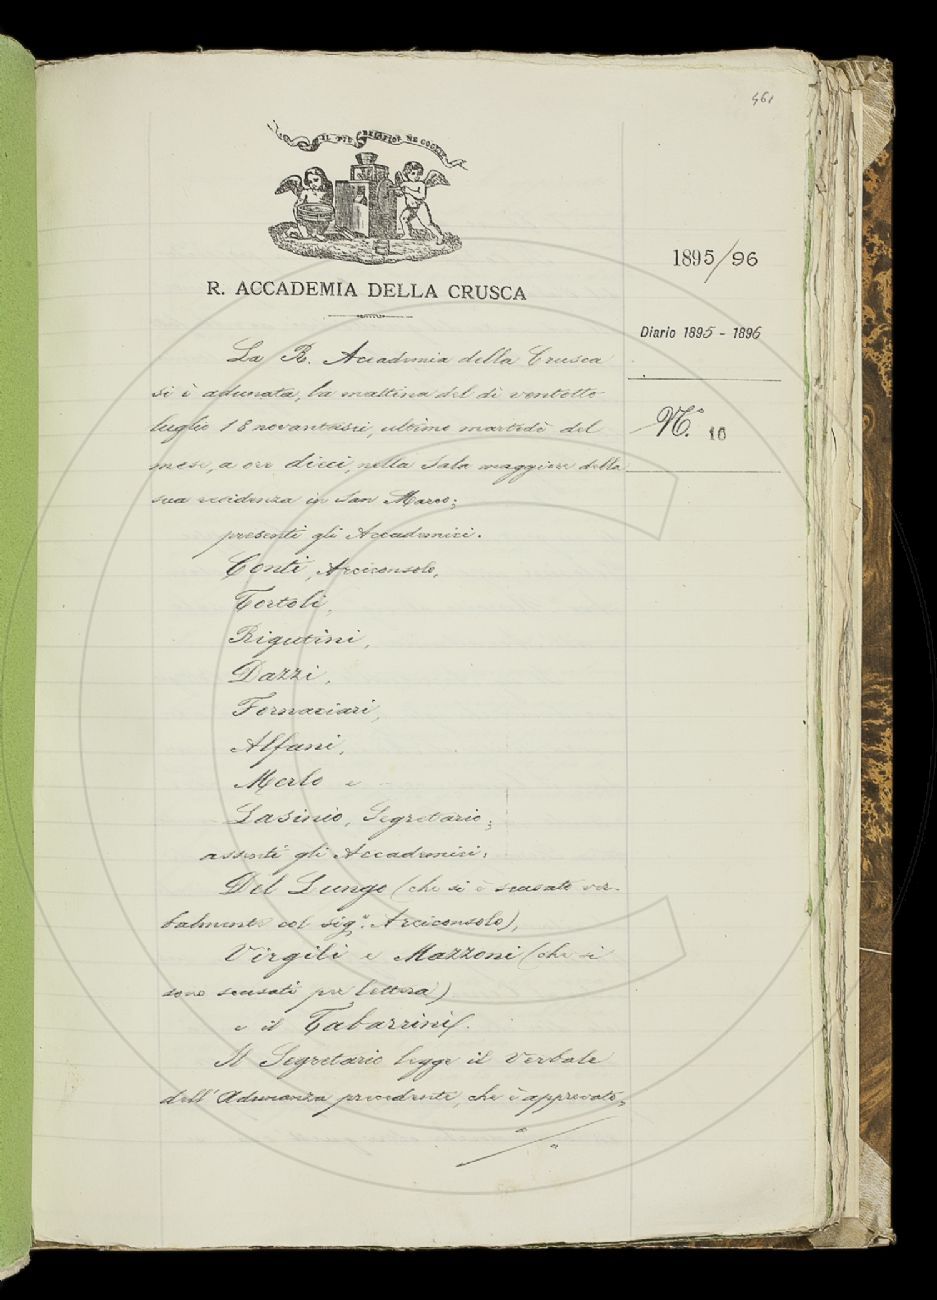 461
IL PIÙ BEL FIOR NE COGLIE
1895/96
R. ACCADEMIA DELLA CRUSCA
Diario 1895 - 1896
N.° 10
La R. Accademia della Crusca
si è adunata, la mattina del dì ventotto
luglio 18novantasei, ultimo martedì del
mese, a ore dieci, nella Sala maggiore della
sua residenza in San Marco;
presenti gli Accademici.
Conti, Arciconsolo,
Tortoli,
Rigutini,
Dazzi,
Fornaciari,
Alfani,
Merlo e
Lasinio, Segretario;
assenti gli Accademici:
Del Lungo (che si è scusato ver-
balmente col sig.r Arciconsolo),
Virgili e Mazzoni (che si
sono scusati per lettera)
e il Tabarrini.
Il Segretario legge il Verbale
dell'Adunanza precedente, che è approvato;